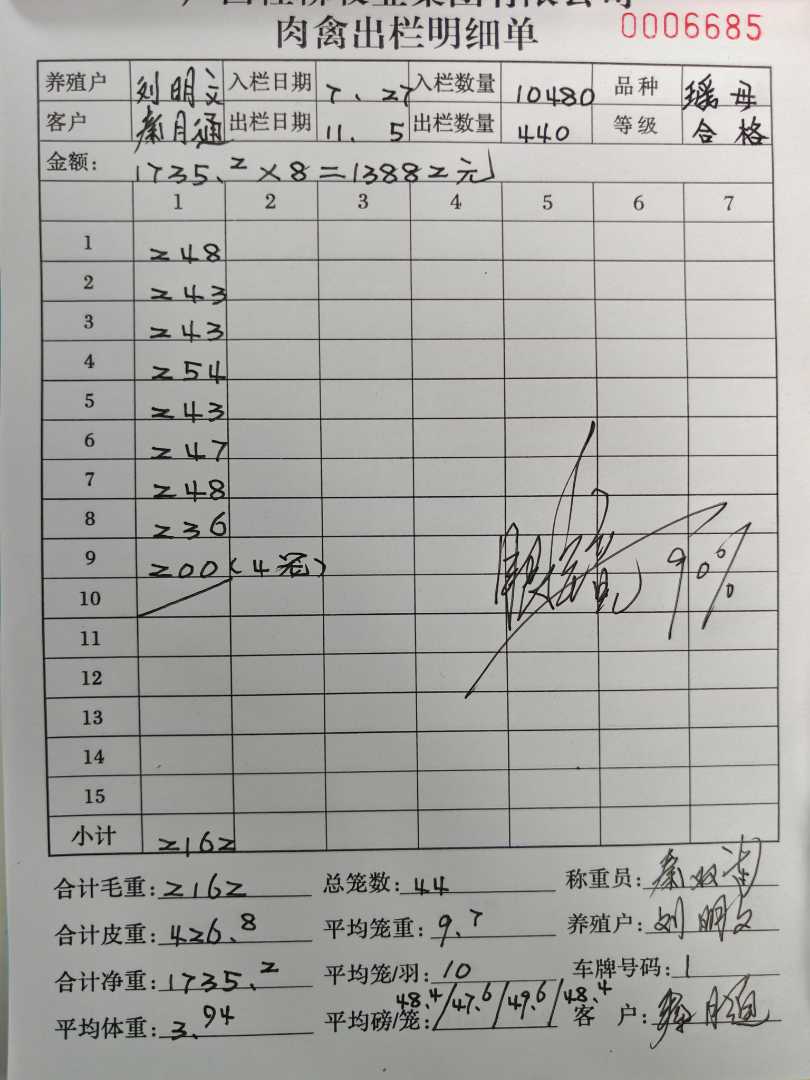 肉禽出栏明细单 0006685
养殖户 刘明文 入栏日期 7、27 入栏数量 10480 品种 瑶母
客户 秦月通 出栏日期 11、5 出栏数量 440 等级 合格
金额: 1735.2×8=13882元
1 2 3 4 5 6 7
1 248
2 243
3 243
4 254
5 243
6 247
7 248
8 236
9 200(4笼)
10
90%
11
12
13
14
15
小计 2162
合计毛重: 2162 总笼数: 44 称重员: 秦双
合计皮重: 426.8 平均笼重: 9.7 养殖户: 刘明文
合计净重: 1735.2 平均笼/羽: 10 车牌号码: 1
平均体重: 3.94 平均磅/笼: 48.4/47.6/49.6/48.4 客户: 秦月通